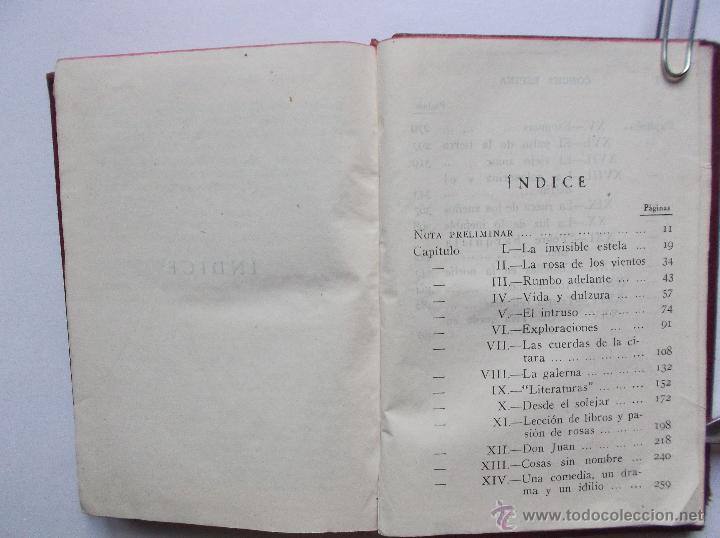 ÍNDICE
ÍNDICE
Páginas
NOTA PRELIMINAR ... ... ... ... ... ... ... 11
Capítulo I.—La invisible estela ... ... 19
— II.—La rosa de los vientos 34
— III.—Rumbo adelante ... ... 43
— IV.—Vida y dulzura ... ... 57
— V.—El intruso ... ... ... 74
— VI.—Exploraciones ... ... 91
— VII.—Las cuerdas de la cí-
tara ... ... ... ... ... 108
— VIII.—La galerna ... ... ... 132
— IX.—"Literaturas" ... ... 152
— X.—Desde el solejar ... ... 172
— XI.—Lección de libros y pa-
sión de rosas ... ... ... 198
— XII.—Don Juan ... ... ... 218
— XIII.—Cosas sin nombre ... 240
— XIV.—Una comedia, un dra-
ma y un idilio ... ... 259
© www.todocoleccion.net